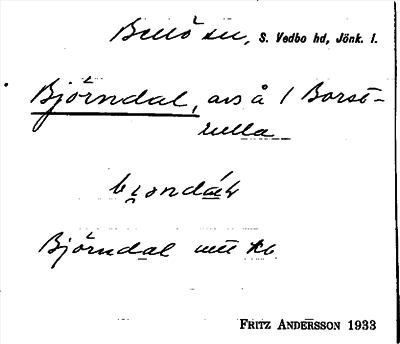 Bellö sn, S. Vedbo hd, Jönk. l.
Björndal, avs å 1 Borst-
rulla
Björndal
FRITZ ANDERSSON 1933